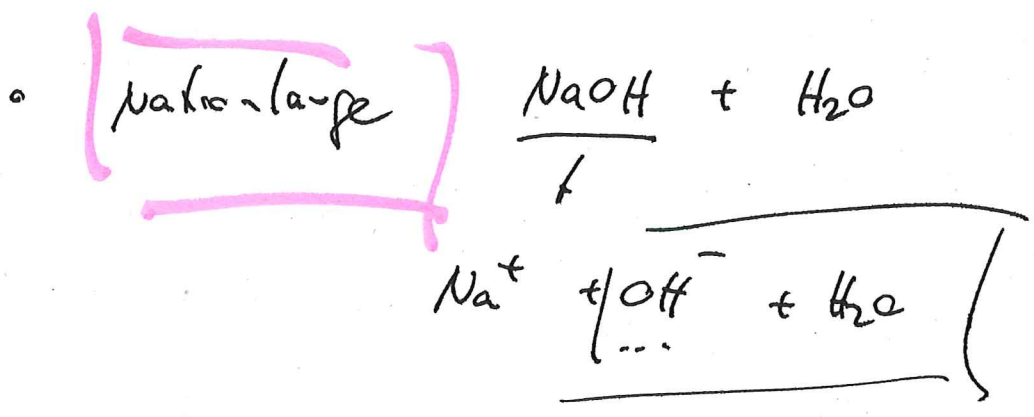 Natronlauge NaOH + H₂O
Na⁺ + OH⁻ + H₂O